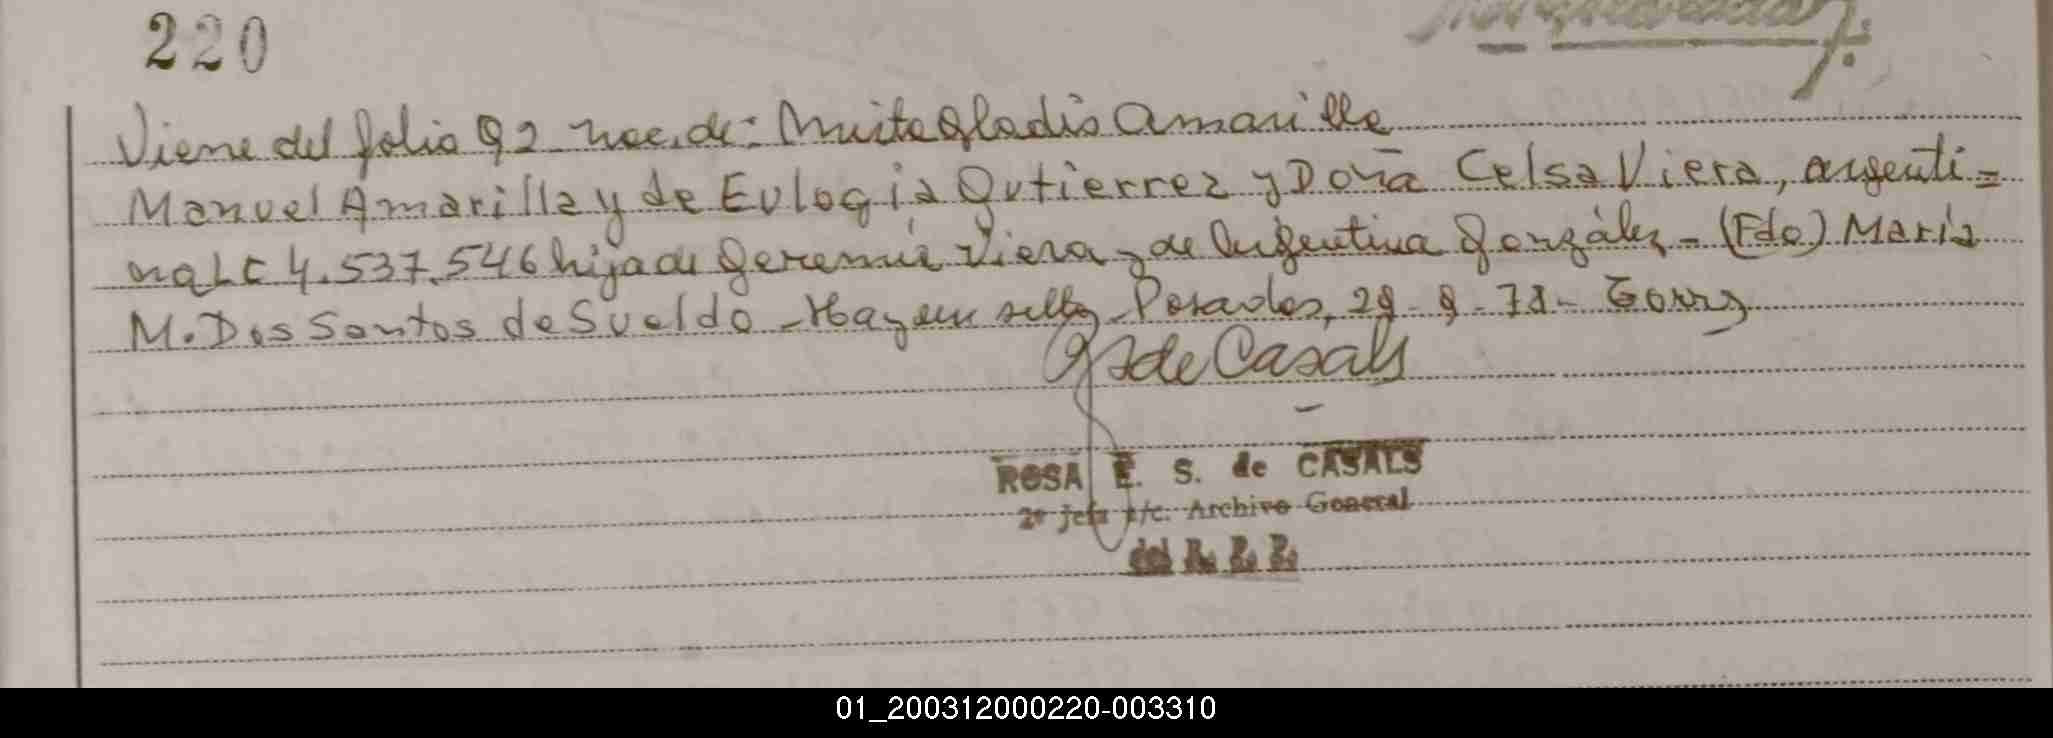 220
Viene del folio 92 nac. de: Mirta Gladis Amarilla
Manuel Amarilla y de Eulogia Gutierrez y Doña Celsa Viera, argenti=
na LC 4.537.546 hija de Geremia Viera y de Argentina González - (Fdo) María
M. Dos Santos de Sueldo - Hay un sello - Posadas, 29 - 9 - 78 -
de Casals
ROSA E. S. de CASALS
2º jefa a/c. Archivo General
del R. P. P.
01_200312000220-003310